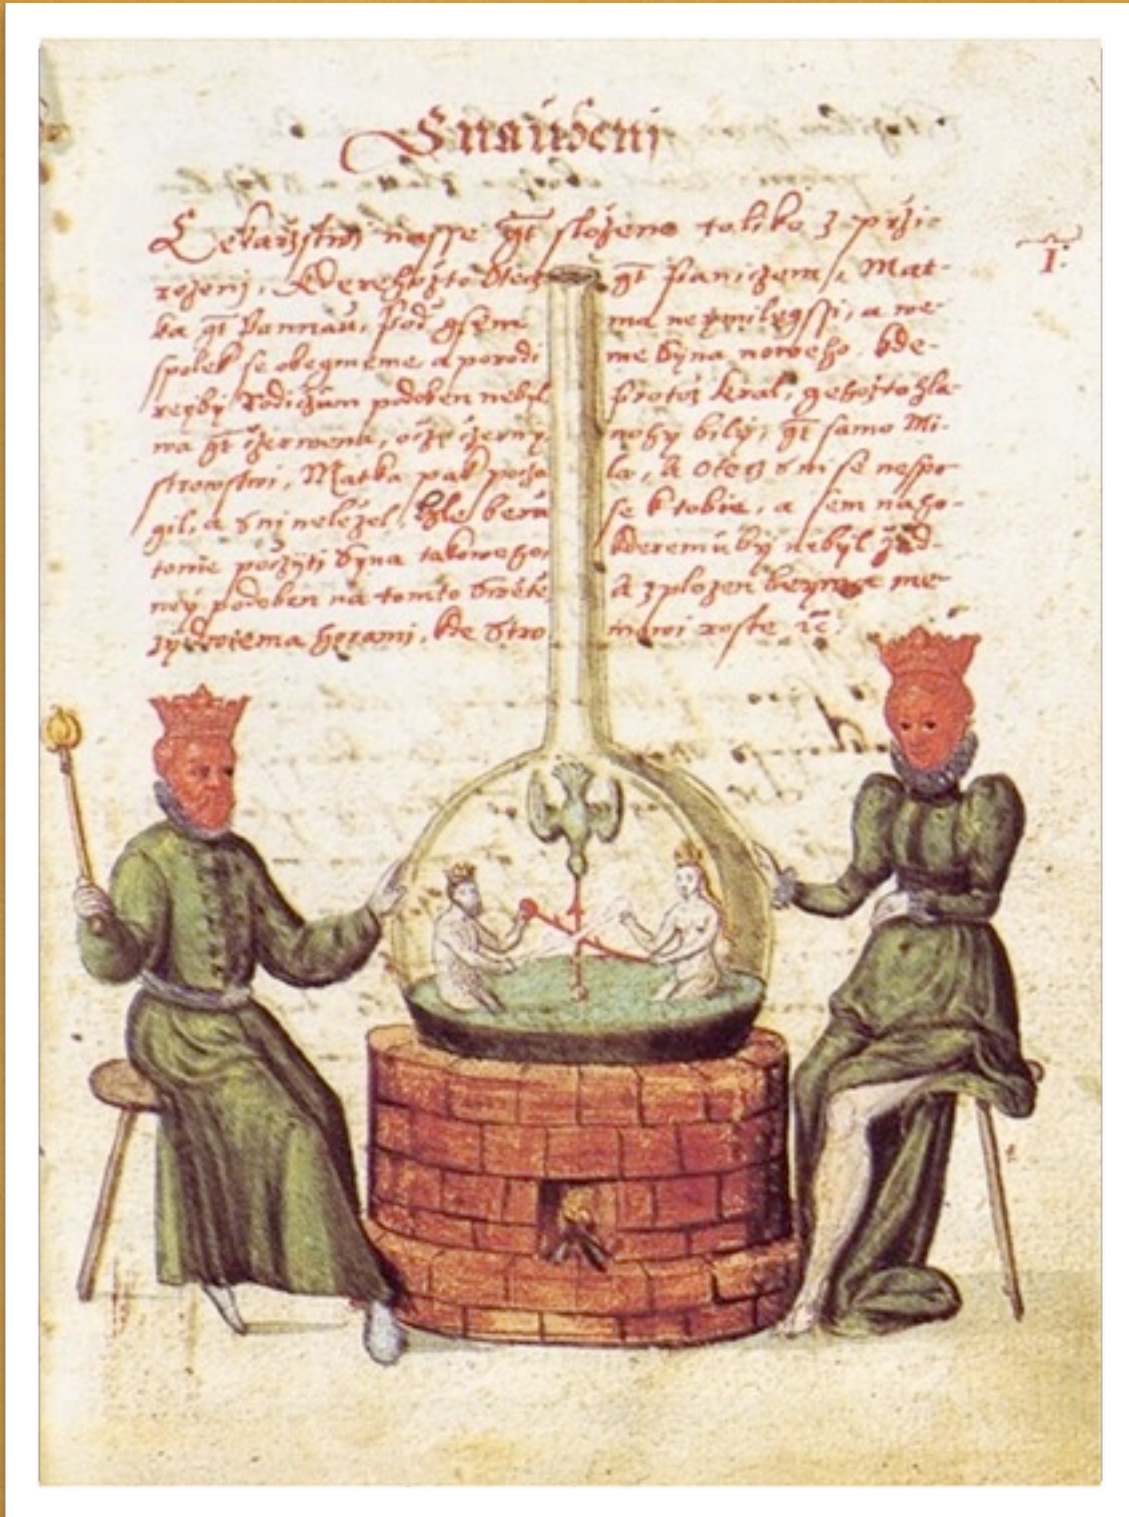 Snaubenj
Lekarzstwj nasse gt slozeno toliko z przi-
rozenj, Otecz gt Paniczem, Mat-
ka gt Pannau, Pod gsem ma neymilegssi, a we-
spolek se obegmeme, a porodi me Syna noweho, kde-
reyby Rodiczům podoben nebyl Protoz Kral, gehozto hla-
wa gt czerwena, oczi czerny, nohy bily, gt samo Mi-
strowstwi, Matka pak porzo la, A Otecz s ni se nespo
gil, a s ni nelezel, Ale beru se k tobie, a sem naho-
towie Syna takoweho, kderemu by nebyl zad-
ney podoben na tomto Swiete A zplozen
zy dwiema horami, stro mowi roste ꝛc:
I: